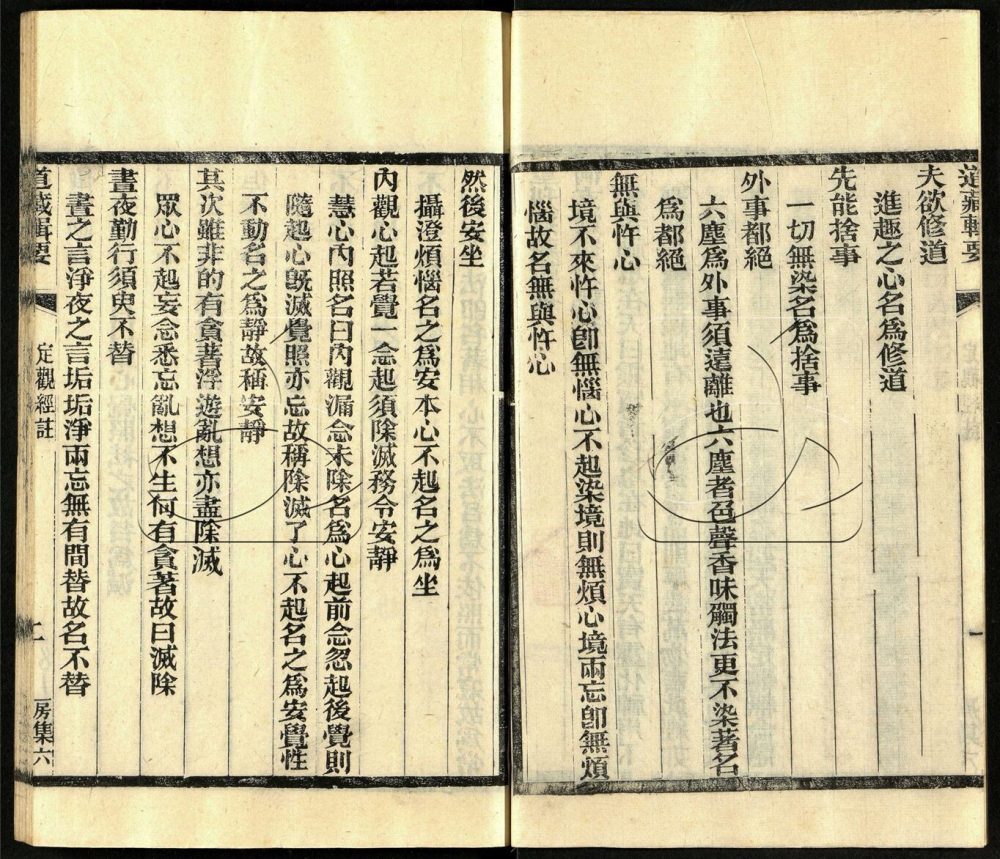 道藏輯要
一
夫欲修道
進趣之心名爲修道
先能捨事
一切無染名爲捨事
外事都絕
六塵爲外事須遠離也六塵者色聲香味觸法更不染著名
爲都絕
無與忤心
境不來忤心卽無惱心不起染境則無煩心境兩忘卽無煩
惱故名無與忤心
然後安坐
攝澄煩惱名之爲安本心不起名之爲坐
內觀心起若覺一念起須除滅務令安靜
慧心內照名曰內觀漏念未除名爲心起前念忽起後覺則
隨起心旣滅覺照亦忘故稱除滅了心不起名之爲安覺性
不動名之爲靜故稱安靜
其次雖非的有貪著浮遊亂想亦盡除滅
眾心不起妄念悉忘亂想不生何有貪著故曰滅除
晝夜勤行須臾不替
晝之言淨夜之言垢垢淨兩忘無有間替故名不替
道藏輯要
定觀經註
二
房集六